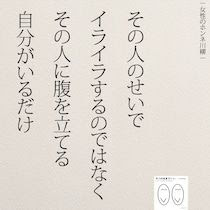 女性のホンネ川柳
その人のせいで
イライラするのではなく
その人に腹を立てる
自分がいるだけ